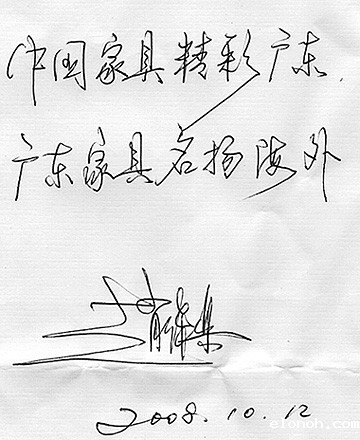 中国家具精彩广东.
广东家具名扬海外
2008.10.12
elonoh.com